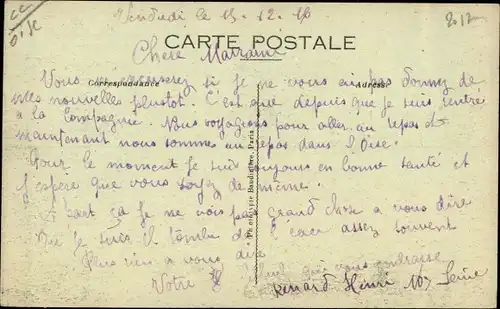 Vendredi le 15.12.16
CARTE POSTALE
Chere Marraine
Correspondance
Adresse
Vous m'excuserez si je ne vous ai pas donnez de
mes nouvelles plustot. C'est que depuis que je suis rentré
a la compagnie. Nous voyageons pour aller au repas et
maintenant nous somme au repos dans l'Oise.
Pour le moment je suis toujours en bonne santé et
j'espere que vous soyez de même.
a part ça je ne vois pas grand chose a vous dire
que je suis il tombe de l'eau assez souvent
Plus rien a vous dire
Votre qui vous embrasse
Renard Henri 107
Phototypie Baudinière, Paris